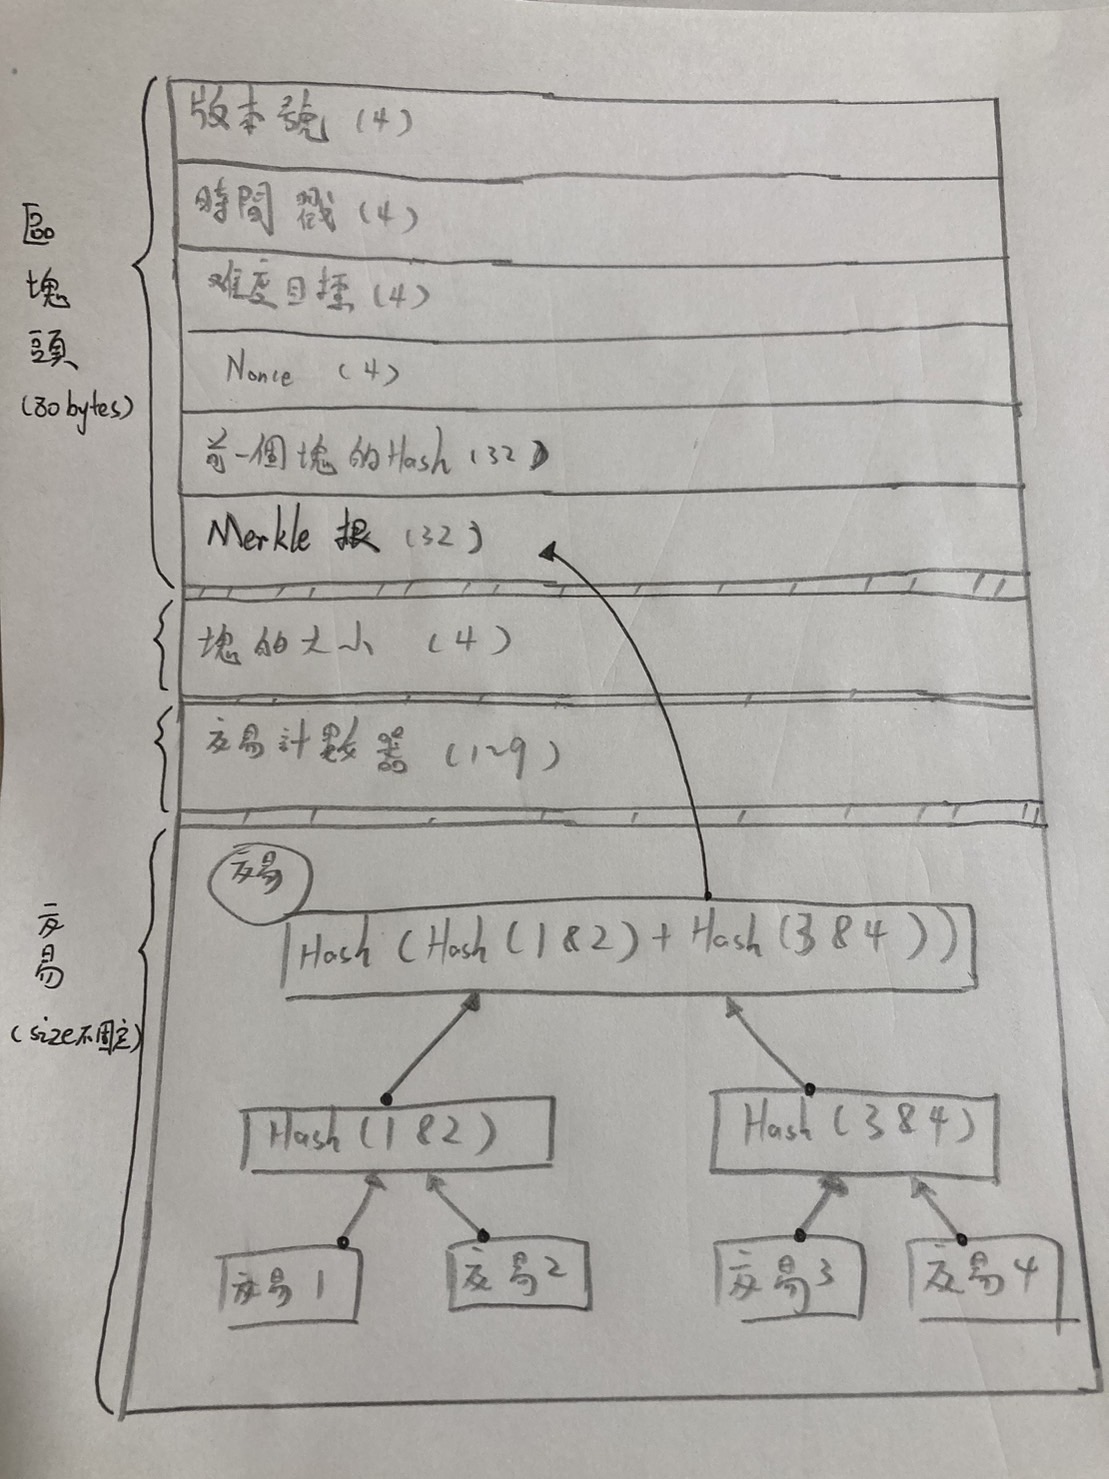 版本號 (4)
時間戳 (4)
难度目標 (4)
Nonce (4)
前一個塊的Hash (32)
Merkle 根 (32)
區
塊
頭
(80 bytes)
塊的大小 (4)
交易計數器 (1~9)
交易
Hash (Hash (1&2) + Hash (3&4))
Hash (1&2)
Hash (3&4)
交易1
交易2
交易3
交易4
交
易
(size不固定)